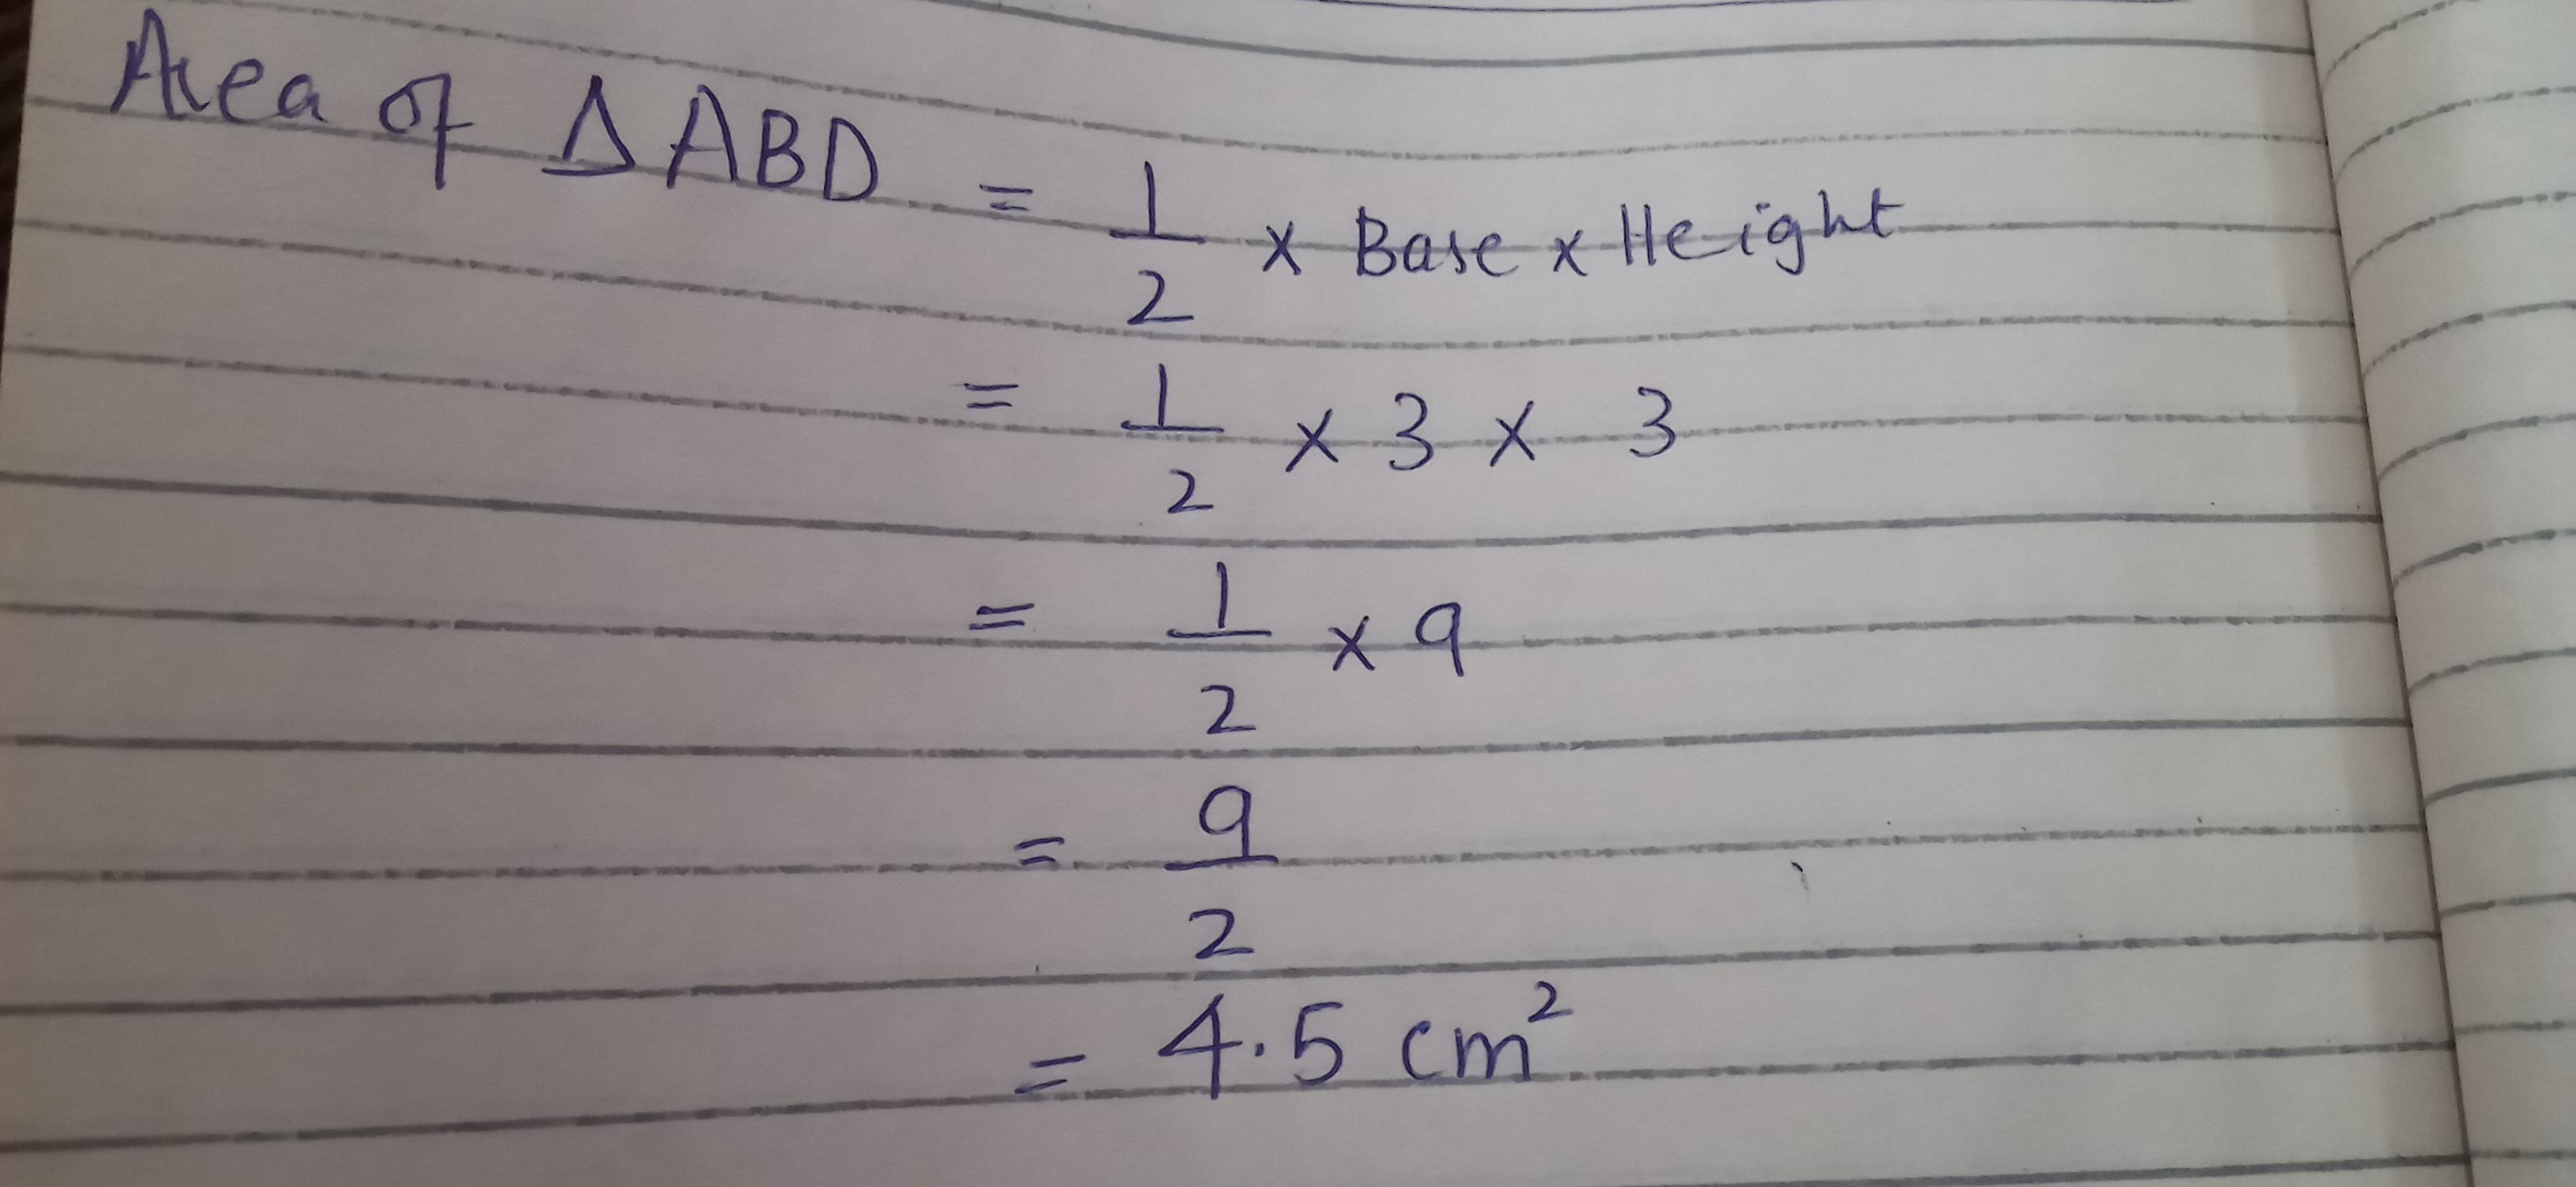 Area of △ABD = 1/2 x Base x Height
= 1/2 x 3 x 3
= 1/2 x 9
= 9/2
= 4.5 cm²